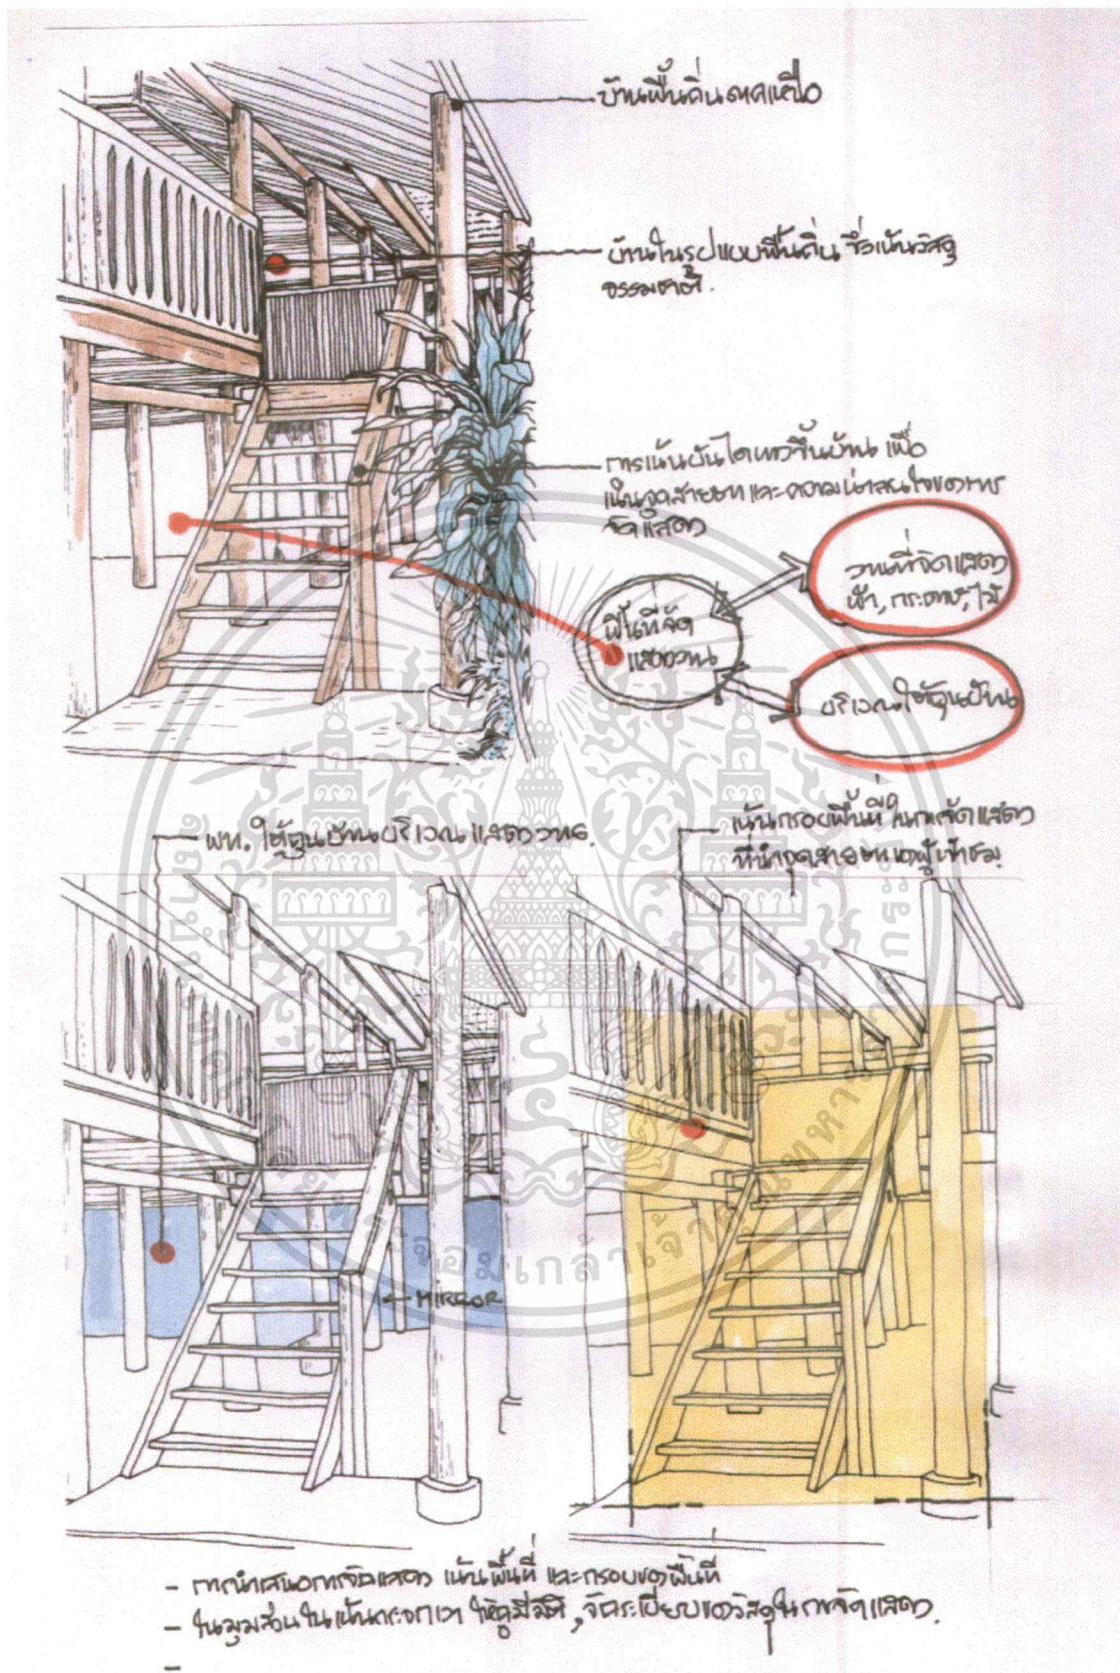 บ้านพื้นถิ่นภาคเหนือ
บ้านในรูปแบบพื้นถิ่น ซึ่งเน้นวัสดุ
ธรรมชาติ.
การเน้นบันไดทางขึ้นบ้าน เพื่อ
เน้นจุดสายตา และความน่าสนใจของการ
จัดแสดง
งานที่จัดแสดง
ผ้า, กระดาษ, ไม้
พื้นที่จัด
แสดงงาน
บริเวณใต้ถุนบ้าน
พท. ใต้ถุนบ้านบริเวณแสดงงาน.
เน้นกรอบพื้นที่ ในการจัดแสดง
ที่นำจุดสายตาของผู้เข้าชม.
← MIRROR
- การนำเสนอการจัดแสดง เน้นพื้นที่ และกรอบของพื้นที่
- ในมุมส่วนในเน้นกระจกเงา ให้ดูมีมิติ, จัดระเบียบของวัสดุในการจัดแสดง.
-